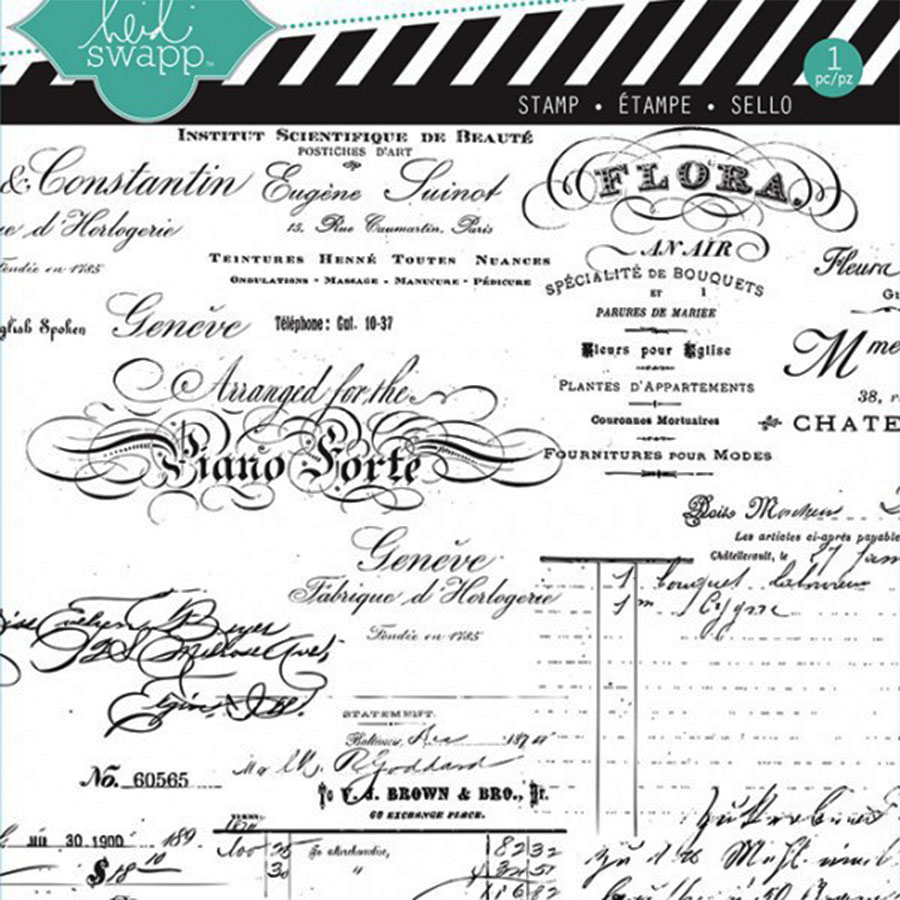 heidi
swapp™
1
pc/pz
STAMP • ÉTAMPE • SELLO
INSTITUT SCIENTIFIQUE DE BEAUTÉ
POSTICHES D'ART
& Constantin
Eugène Suinot
FLORA.
e d'Horlogerie
15, Rue Caumartin, Paris
AN AIR
Fondée en 1785
TEINTURES HENNÉ TOUTES NUANCES
ONDULATIONS - MASSAGE - MANUCURE - PÉDICURE
SPÉCIALITÉ DE BOUQUETS
ET
PARURES DE MARIÉE
Fleurs pour Eglise
PLANTES D'APPARTEMENTS
Couronnes Mortuaires
FOURNITURES POUR MODES
Fleura
Mme
38, r
CHATE
glish Spoken
Genève
Téléphone: Gut. 10-37
Arranged for the
Piano Forte
Doit
Les articles ci-après payable
Châtellerault, le
Genève
Fabrique d'Horlogerie
Fondée en 1785
1 bouquet
1
iss Evelyn Beyer
Elgin Ill.
STATEMENT.
Baltimore,
187
No. 60565
R Goddard
To V. J. BROWN & BRO., Dr.
60 EXCHANGE PLACE.
30, 1900
189
$18 10
To merchandise,
1832